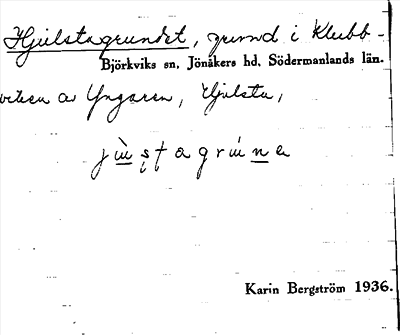 Hjulstagrundet, grund i Klubb-
Björkviks sn, Jönåkers hd, Södermanlands län.
viken av Yngaren, Hjulsta,
Karin Bergström 1936.